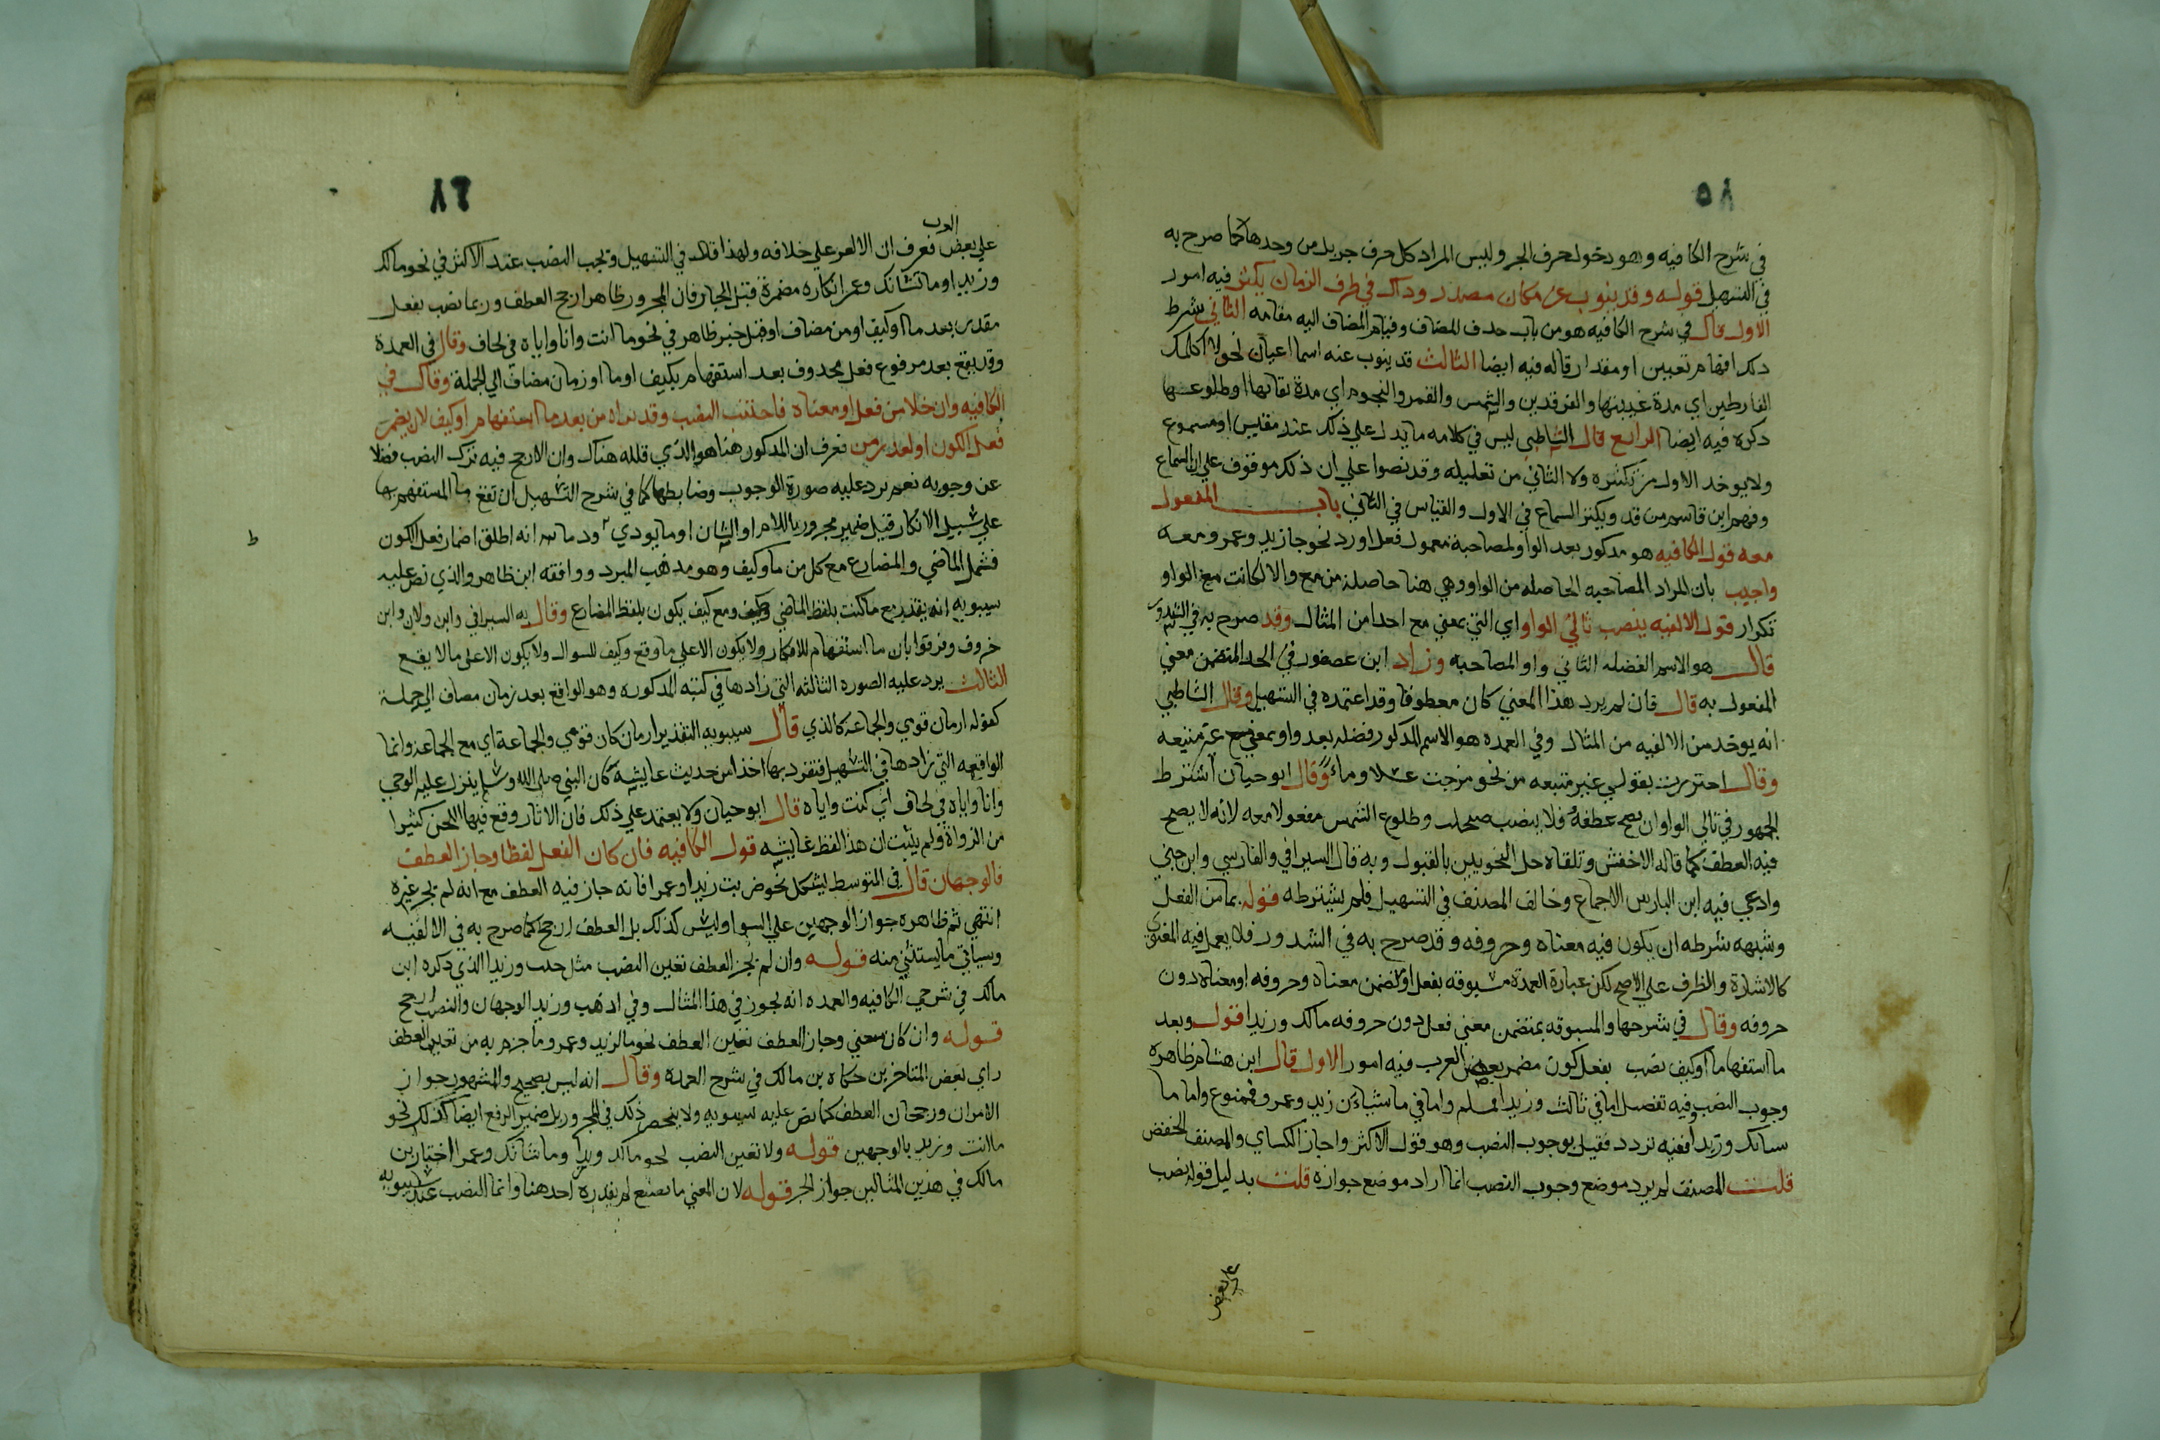 ٨٥
في شرح الكافيه وهو دخول حرف الجر وليس المراد كل حرف جر بل من وحدها كما صرح به
في التسهيل قوله وقد ينوب عن مكان مصدر وذاك في ظرف الزمان يكثر فيه امور
الاول قال في شرح الكافيه هو من باب حذف المضاف وقيام المضاف اليه مقامه الثاني شرط
ذلك افهام تعيين او مقدار قاله فيه ايضا الثالث قد ينوب عنه اسما اعيان نحو لا اكلمك
القارظين اي مدة غيبتها والفرقدين والشمس والقمر والنجوم اي مدة بقائها او طلوعها
ذكره فيه ايضا الرابع قال الشاطبي ليس في كلامه ما يدل علي ذلك عند مقيس او مسموع
ولا يوخذ الاول من يكثر ولا الثاني من تعليله وقد نصوا علي ان ذلك موقوف علي السماع
وفهم ابن قاسم من قد ويكثر السماع في الاول والقياس في الثاني باب المفعول
معه قول الكافيه هو مذكور بعد الواو لمصاحبة معمول فعل اورد نحو جا زيد وعمرو معه
واجيب بان المراد المصاحبه الحاصله من الواو وهي هنا حاصلة من مع والا لكانت مع الواو
تكرار قول الالفيه ينصب تالي الواو اي التي بمعني مع اخذا من المثال وقد صرح به في الشذور
قال هو الاسم الفضله التالي واو المصاحبه وزاد ابن عصفور في الحد المتضمن معني
المفعول به قال فان لم يرد هذا المعني كان معطوفا وقد اعتمده في التسهيل وقال الشاطبي
انه يوخذ من الالفيه من المثال وفي العمده هو الاسم المذكور فضله بعد واو بمعني مع غير متبعه
وقال احترزت بقولي غير متبعه من نحو مزجت عسلا وماء وقال ابو حيان اشترط
الجمهور في تالي الواو ان يصح عطفه فلا ينصب ضحك وطلوع الشمس مفعولا معه لانه لا يصح
فيه العطف كما قاله الاخفش وتلقاه جل النحويين بالقبول وبه قال السيرافي والفارسي وابن جني
وادعي فيه ابن الباذش الاجماع وخالف المصنف في التسهيل فلم يشترطه قوله بما من الفعل
وشبهه شرطه ان يكون فيه معناه وحروفه وقد صرح به في الشذور فلا يعمل فيه المعنوي
كالاشارة والظرف علي الاصح لكن عبارة العمدة مسبوقه بفعل او متضمن معناه وحروفه او معناه دون
حروفه وقال في شرحها والمسبوقه بمتضمن معني فعل دون حروفه مالك وزيدا قوله وبعد
ما استفهام او كيف نصب بفعل كون مضمر بعض العرب فيه امور الاول قال ابن هشام ظاهره
وجوب النصب وفيه تفصيل اما في نا ثالث وزيد المسلم واما في ما شان زيد وعمرو فممنوع واما ما
شانك وزيدا ففيه تردد فقيل بوجوب النصب وهو قول الاكثر واجاز الكساي والمصنف الخفض
قلت المصنف لم يرد موضع وجوب النصب انما اراد موضع جوازه قلت بدليل قوله نصب
علي بعض
٨٦
العرب
علي بعض فعرف ان الاكثر علي خلافه ولهذا قال في التسهيل ويجب النصب عند الاكثر في نحو مالك
وزيدا وما شانك وعمرا كاره مضمرة قبل الجار فان المجرور ظاهر ارجح العطف وربما نصب بفعل
مقدر بعد ما او كيف او من مضاف او قبل خبر ظاهر في نحو ما انت وانا واياه في لحاف وقال في العمدة
وقد يقع بعد مرفوع فعل محذوف بعد استفهام بكيف او ما او زمان مضاف الي الجملة وقال في
الكافيه وان خلا من فعل او معناه فاجتنب النصب وقد تراه من بعد ما استفهام او كيف لان يضمر
فعل الكون او لعذر من فعرف ان المذكور هنا هو الذي قلله هناك وان الارجح فيه ترك النصب فضلا
عن وجوبه نعم يرد عليه صورة الوجوب وضابطها كما في شرح التسهيل ان تقع ما المستفهم بها
علي سبيل الانكار قبل ضمير مجرور باللام او الشان او ما يودي وما انه اطلق اضمار فعل الكون
فشمل الماضي والمضارع مع كل من ما وكيف وهو مذهب المبرد ووافقه ابن طاهر والذي نص عليه
سيبويه انه يقدر مع ما كنت بلفظ الماضي ومع كيف يكون بلفظ المضارع وقال به السيرافي وابن ولاد وابن
خروف وفرقوا بان ما استفهام للانكار ولا يكون الا علي ما وقع وكيف للسوال ولا يكون الا علي ما لا يقع
الثالث يرد عليه الصورة الثالثه التي زادها في كتبه المذكوره وهو الواقع بعد زمان مضاف الي جملة
كقوله ازمان قومي والجماعة كالذي قال سيبويه التقدير ازمان كان قومي والجماعة اي مع الجماعة وانما
الواقعه التي زادها في التسهيل فتفرد بها اخذا من حديث عايشه كان النبي صلى الله وسلم ينزل عليه الوحي
وانا واياه في لحاف اي كنت واياه قال ابو حيان ولا يعتمد علي ذلك فان الاثار وقع فيها اللحن كثيرا
من الرواة ولم يثبت ان هذا لفظ عايشه قول الكافيه فان كان الفعل لفظا وجاز العطف
فالوجهان قال في المتوسط ليشكل بنحو ضربت زيدا وعمرا فانه جاز فيه العطف مع انه لم يجر غيره
انتهي ثم ظاهره جواز الوجهين علي السوا وليس كذلك بل العطف ارجح كما صرح به في الالفيه
وسياتي ما يستثني منه قوله وان لم يجز العطف تعين النصب مثل جلت وزيدا الذي ذكره ابن
مالك في شرحي الكافيه والعمده انه يجوز في هذا المثال وفي اذهب وزيد الوجهان والنصب ارجح
قوله وان كان معني وجاز العطف تعين العطف نحو ما لزيد وعمرو ما جزم به من تعين العطف
راي بعض المتاخرين حكاه بن مالك في شرح العمده وقال انه ليس بصحيح والمشهور جواز
الامران ورجحان العطف كما نص عليه سيبويه ولا ينحصر ذلك في المجرور بل ضمير الرفع ايضا كذلك نحو
ما انت وزيد بالوجهين قوله ولا تعين النصب نحو مالك وزيدا وما شانك وعمرا اختار بن
مالك في هذين المثالين جواز الجر قوله لان المعني ما تصنع لم يقدره احد هنا وانما النصب عند سيبويه
ط